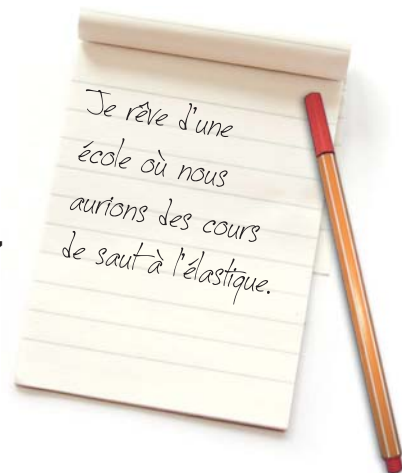 Je rêve d'une
école où nous
aurions des cours
de saut à l'élastique.